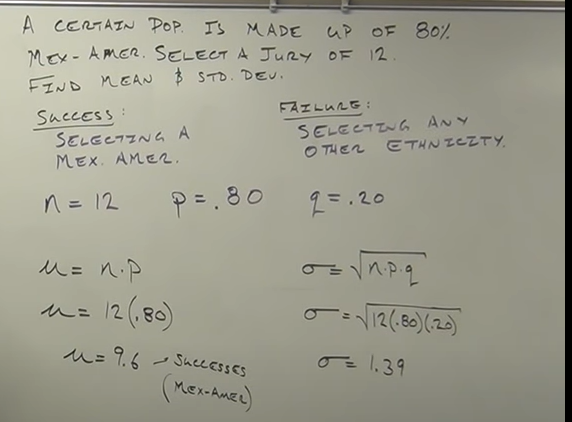 A CERTAIN POP. IS MADE UP OF 80%
MEX-AMER. SELECT A JURY OF 12.
FIND MEAN & STD. DEV.
SUCCESS:
SELECTING A
MEX. AMER.
FAILURE:
SELECTING ANY
OTHER ETHNICITY.
n = 12 p = .80 q = .20
μ = n·p
μ = 12(.80)
μ = 9.6 → SUCCESSES
(MEX-AMER)
σ = √n·p·q
σ = √12(.80)(.20)
σ = 1.39